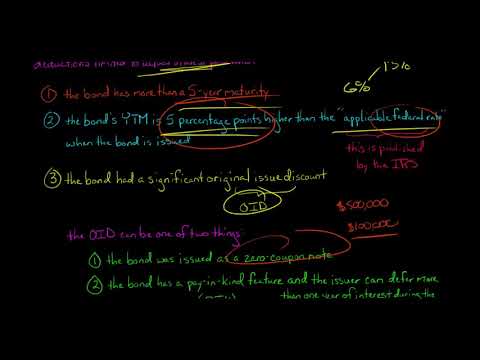 deductions
6%
① the bond has more than a 5-year maturity
② the bond's YTM is 5 percentage points higher than the "applicable federal rate"
when the bond is issued
this is published
by the IRS
③ the bond had a significant original issue discount
OID
$500,000
$100,000
the OID can be one of two things:
① the bond was issued as a zero-coupon note
② the bond has a pay-in-kind feature and the issuer can defer more
than one year of interest during the